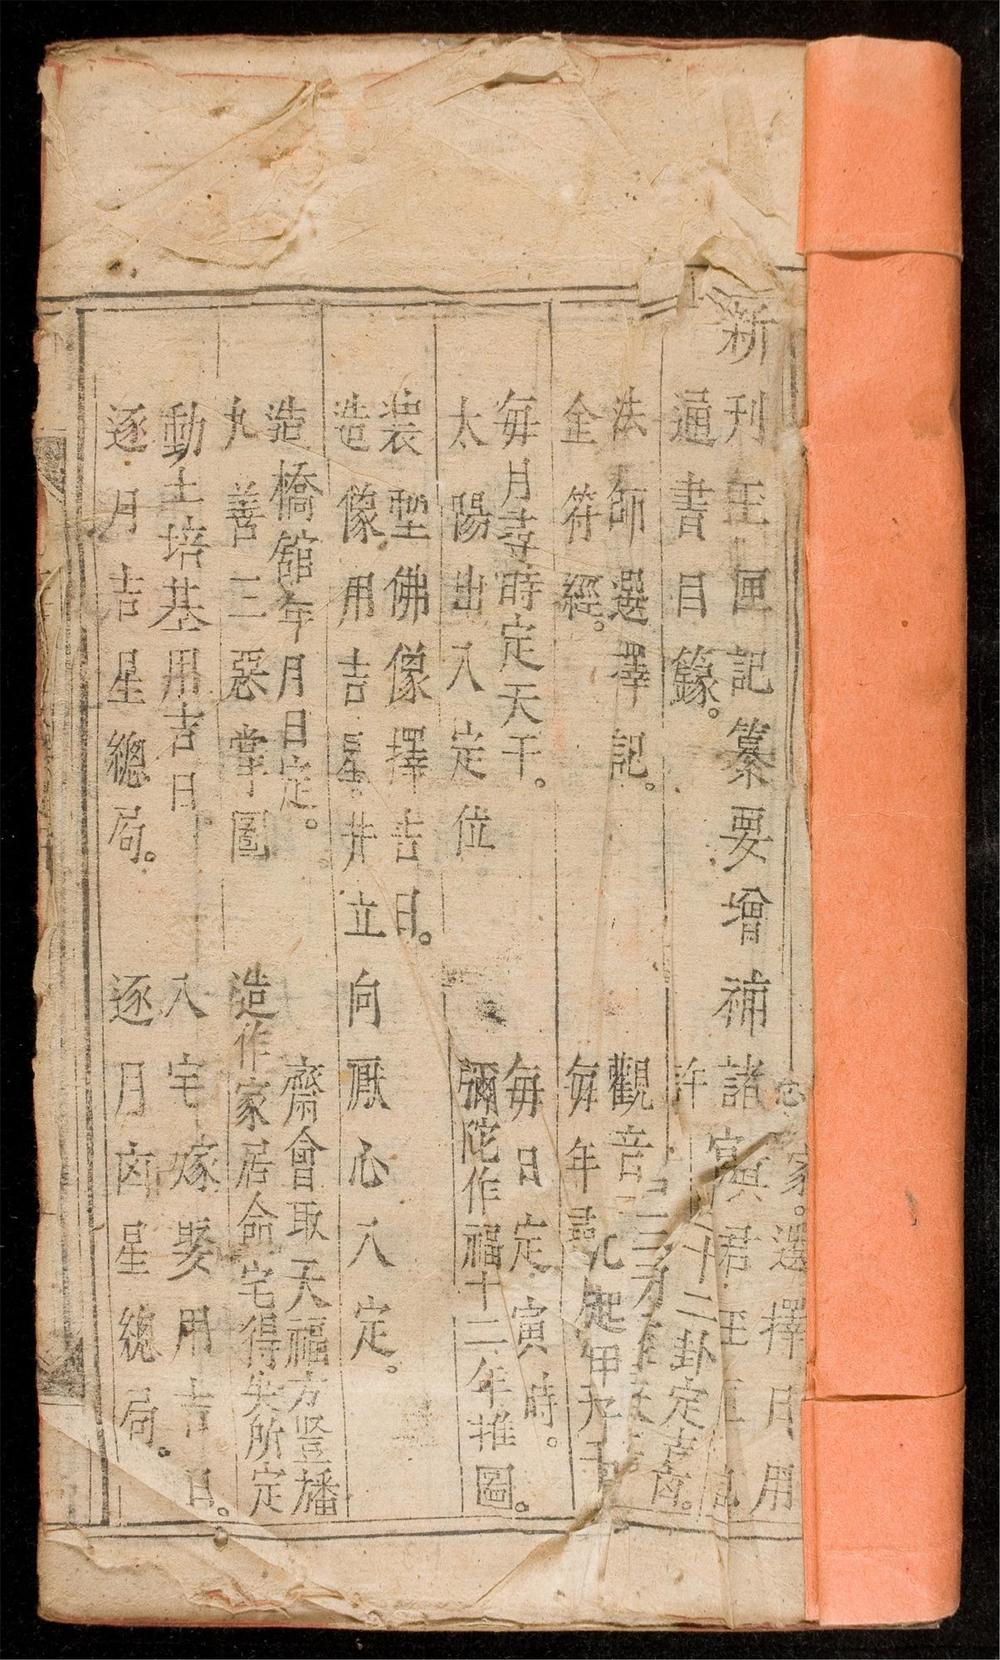 新刊玉匣記纂要增補諸家選擇日用
通書目錄。
法師選擇記。
許
十二卦定吉㐫。
全符經。
觀音
每月寺時定天干。
每年
太陽出入定位
每日定寅時。
彌陀作福十二年推圖。
装塑佛像擇吉日。
造像用吉星并立向厭心入定。
造橋舘年月日定。
齋會取天福方豎旛
九善三惡掌圖
造作家居命宅得失所定
動土培基用吉日。
入宅嫁娶用吉日。
逐月吉星總局。
逐月㐫星總局。